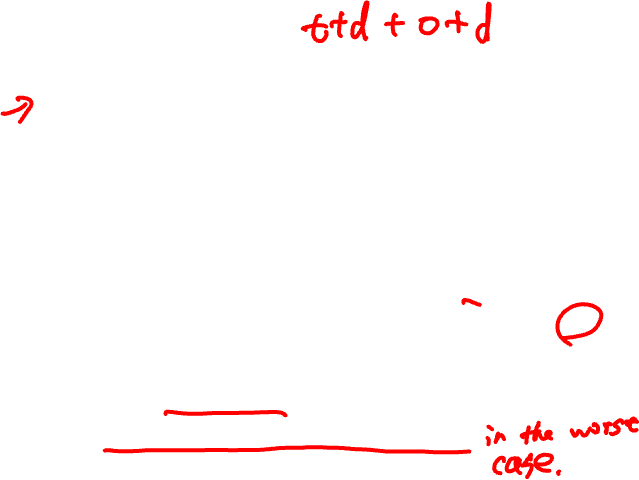 t+d + 0+d
in the worst
case.